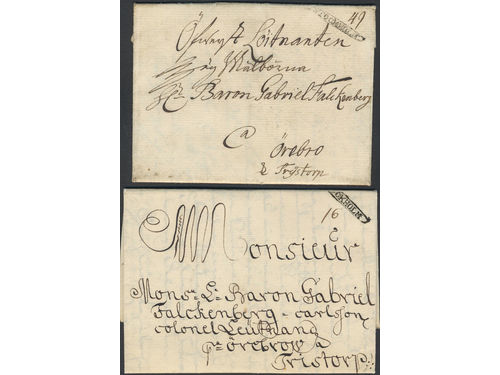 STOCKHOLM
49
Öfwerst Löitnanten
Wälborna
Hr Baron Gabriel Falckenberg
a
Örebro
& Trystorp
STOCKHOLM
16
Monsieur
Mons: Le Baron Gabriel
Falckenberg - carlsson
colonel Leutnand
pr örebro a
Tristorp